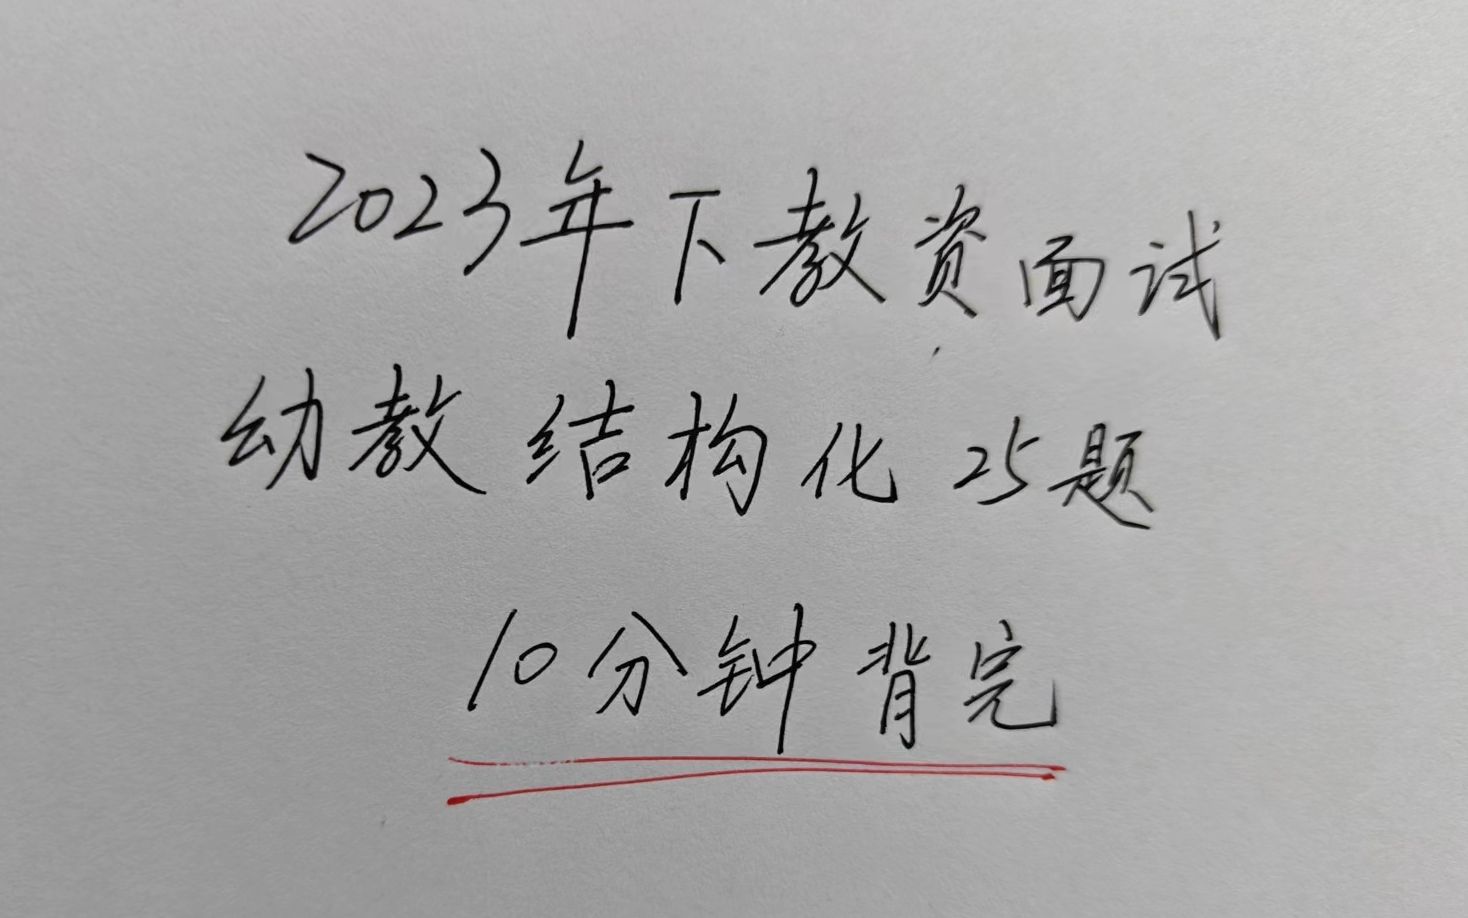 2023年下教资面试
幼教结构化25题
10分钟背完